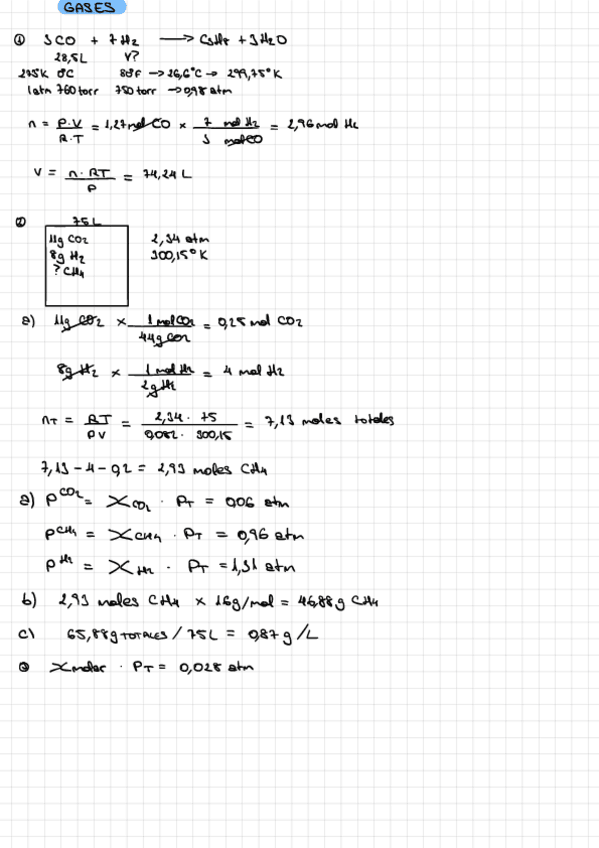 GASES
① 3CO + 7H2 → C3H8 + 3H2O
28,5L V?
275K 0°C 80°F → 26,6°C → 299,75°K
1 atm 760 torr 750 torr → 0,98 atm
n = P·V / R·T = 1,27 mol CO × 7 mol H2 / 3 mol CO = 2,96 mol H2
V = n·RT / P = 74,24 L
② 75L
11g CO2 2,34 atm
8g H2 300,15°K
? CH4
a) 11g CO2 × 1 mol CO2 / 44g CO2 = 0,25 mol CO2
8g H2 × 1 mol H2 / 2g H2 = 4 mol H2
nT = RT / PV = 2,34 · 75 / 0,082 · 300,15 = 7,13 moles totales
7,13 - 4 - 0,2 = 2,93 moles CH4
a) P CO2 = X CO2 · PT = 0,06 atm
P CH4 = X CH4 · PT = 0,96 atm
P H2 = X H2 · PT = 1,31 atm
b) 2,93 moles CH4 × 16g/mol = 46,88g CH4
c) 65,88g TOTALES / 75L = 0,87 g/L
③ X molar · PT = 0,028 atm